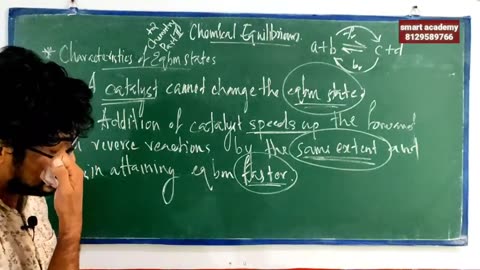 smart academy
8129589766
+2
Chemistry
Part II
Chemical Equilibrium
a+b ⇌ c+d
* Characteristics of Eqbm states
A catalyst cannot change the eqbm state.
Addition of catalyst speeds up the forward
reverse reactions by the same extent and
in attaining eqbm faster.